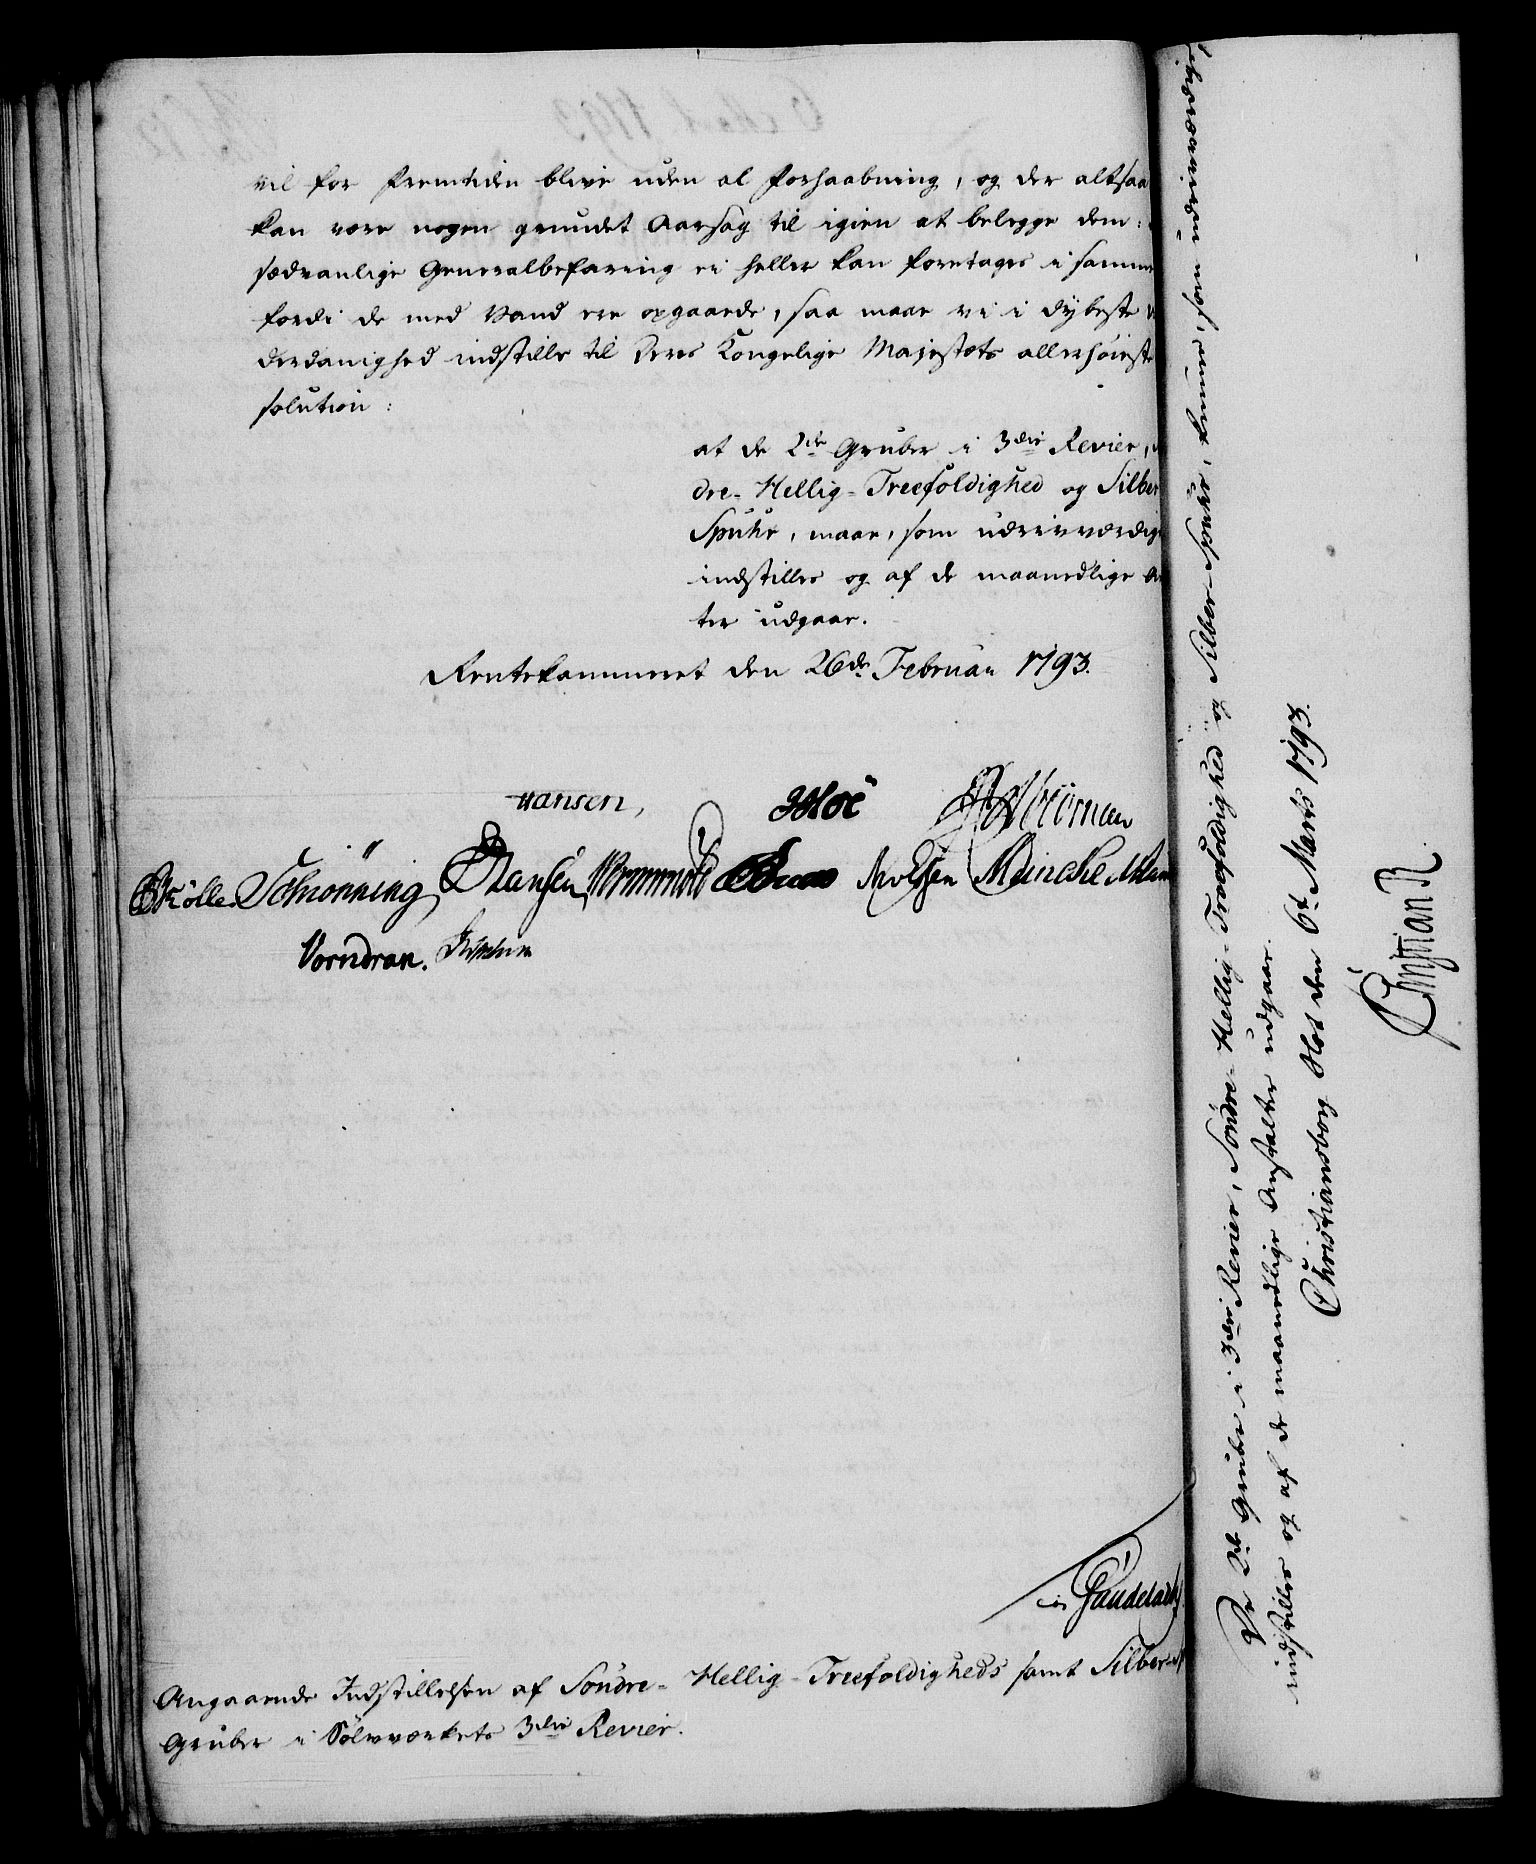 vil for fremtiden blive uden al forhaabning, og der altsaa
kan være nogen grundet Aarsag til igien at belegge dem:
sædvanlige Generalbefaring ei heller kan foretages i samme
fordi de med Vand ere opgaaede, saa maae vi i dybeste
derdanighed indstille til Deres Kongelige Majestæts allerhøieste
solution:
at de 2de Gruber i 3die Revier,
dre-Hellig-Treefoldighed og Silber
Spuhr, maae, som udrivværdige
indstilles og af de maanedlige
ter udgaae.
Rentekammeret den 26de Februar 1793.
Hansen,
Schiönning Hansen Wormskiold Meinche
Vorndran.
Angaaende Indstillelsen af Söndre-Hellig-Treefoldigheds samt Silber
Gruber i Sølvværkets 3die Revier.
De 2de Gruber i 3die Revier, Søndre-Hellig-Treefoldighed og Silber-Spuhr, kunne, som udrivværdige,
indstilles og af de maanedlige Anstalter udgaae.
Christiansborg Slot den 6t Marts 1793.
Christian R